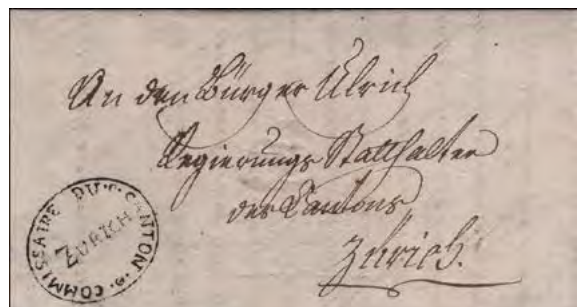 An den Bürger Ulrich
Regierungs Statthalter
des Cantons
Zürich.
COMMISSAIRE DU CANTON
ZURICH